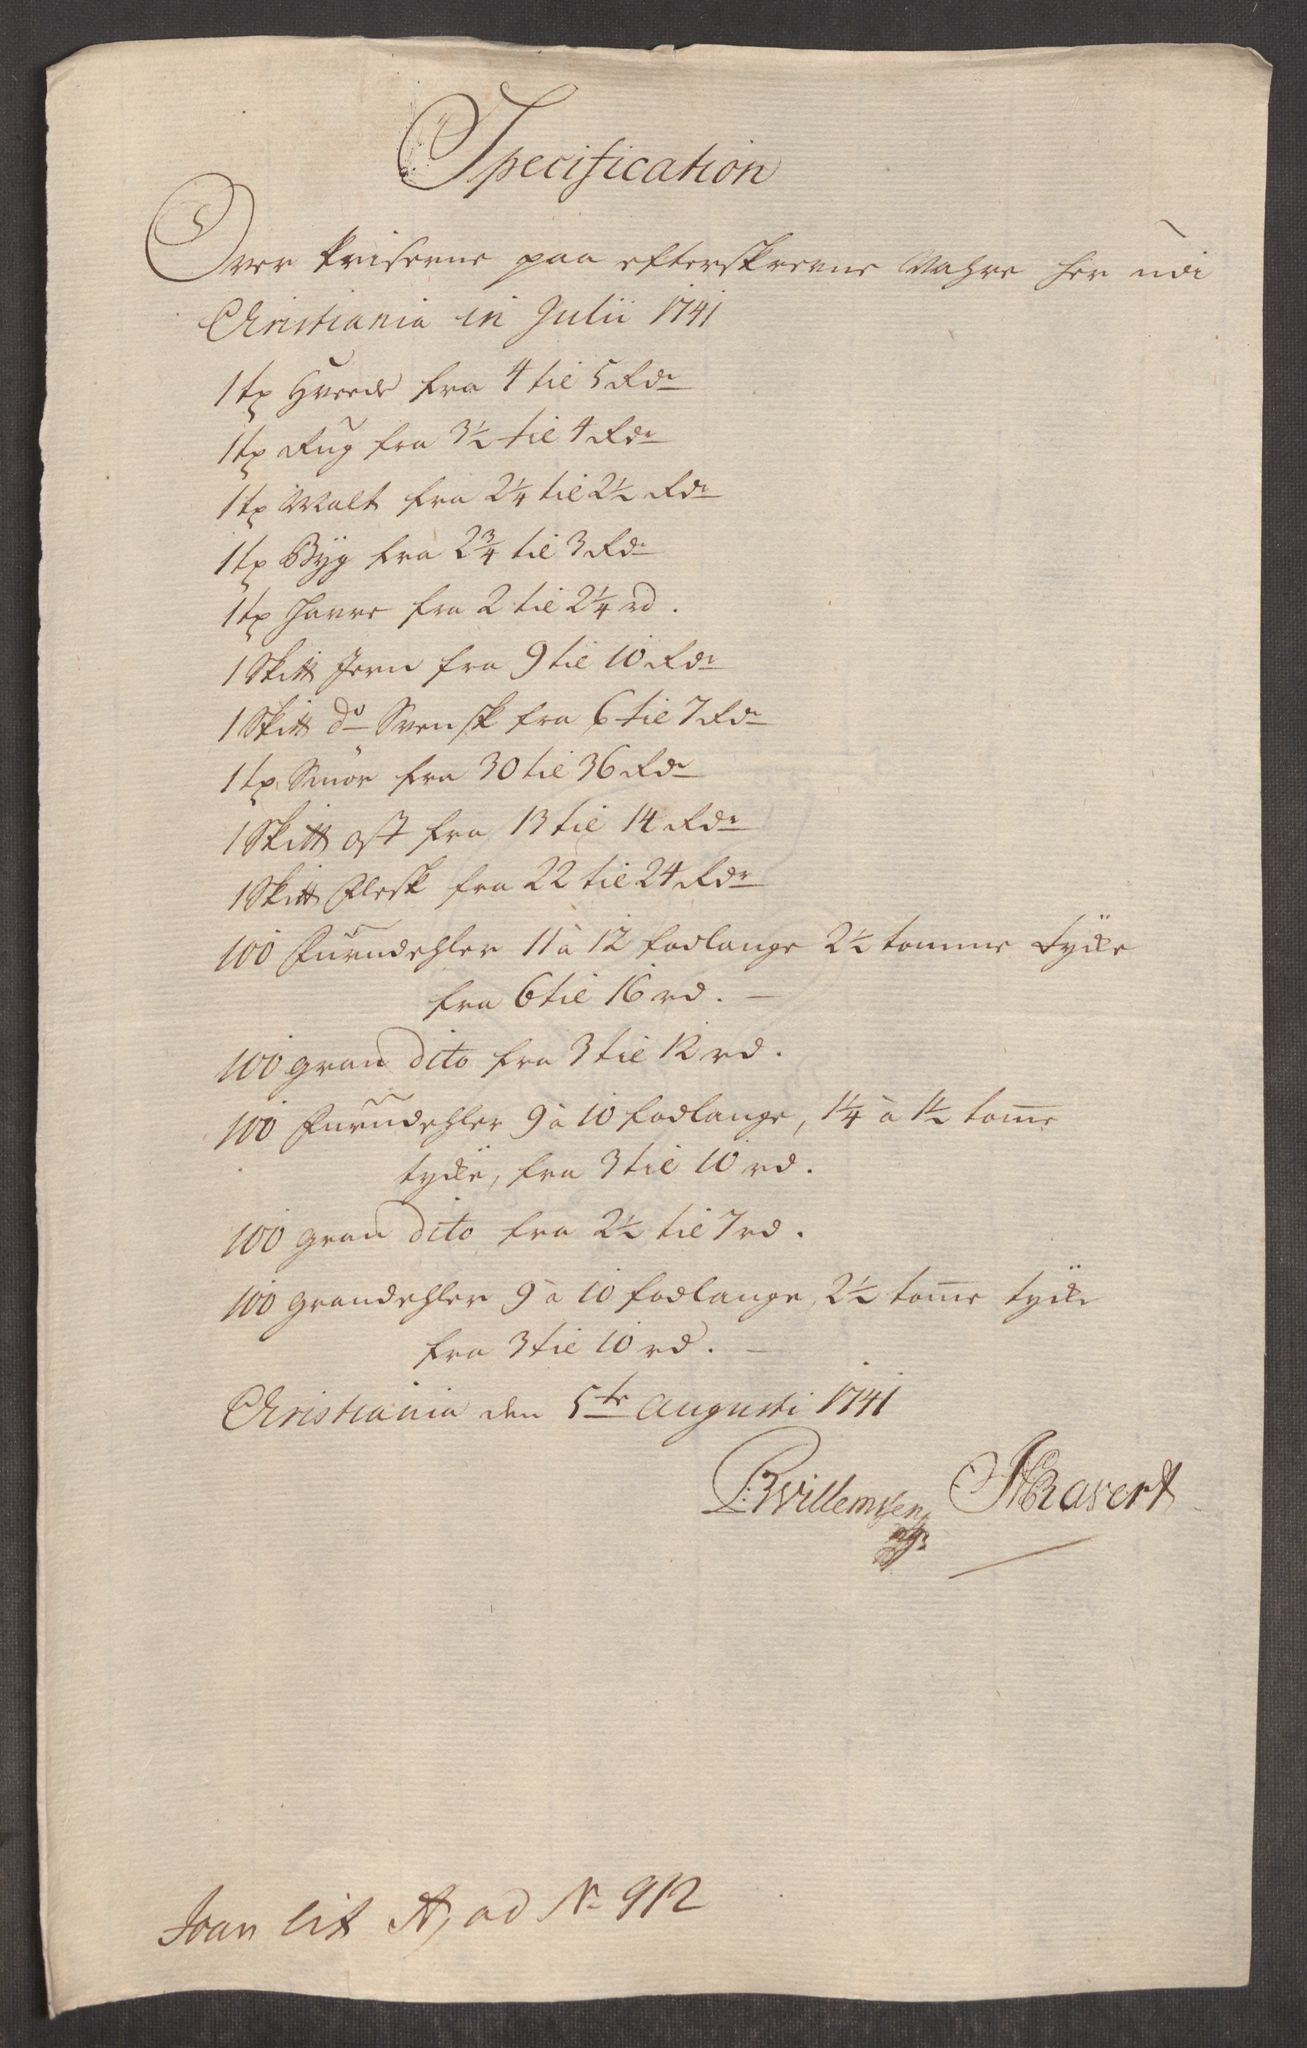 Specification
Over Priserne paa efterskrevne Vahre her udi
Christiania in Julii 1741
1 tø Hveede fra 4 til 5 Rdr
1 tø Rug fra 3½ til 4 Rdr
1 tø Malt fra 2¼ til 2½ Rdr
1 tø Byg fra 2¾ til 3 Rdr
1 tø Havre fra 2 til 2¼ rd.
1 Skit Jern fra 9 til 10 Rdr
1 Skit do Svensk fra 6 til 7 Rdr
1 tø Smör fra 30 til 36 Rdr
1 Skit ost fra 13 til 14 Rdr
1 Skit Flesk fra 22 til 24 Rdr
100 Furudehler 11 à 12 fodlange 2½ tomme tycke
fra 6 til 16 rd. —
100 gran dito fra 3 til 12 rd.
100 Furudehler 9 à 10 fodlange, 1¼ à 1½ tom̅e
tycke, fra 3 til 10 rd.
100 gran dito fra 2½ til 7 rd.
100 grandehler 9 à 10 fodlange, 2½ tom̅e tycke
fra 3 til 10 rd. —
Christiania den 5te Augusti 1741
Willemsen Ravert
Lit A, ad No 912